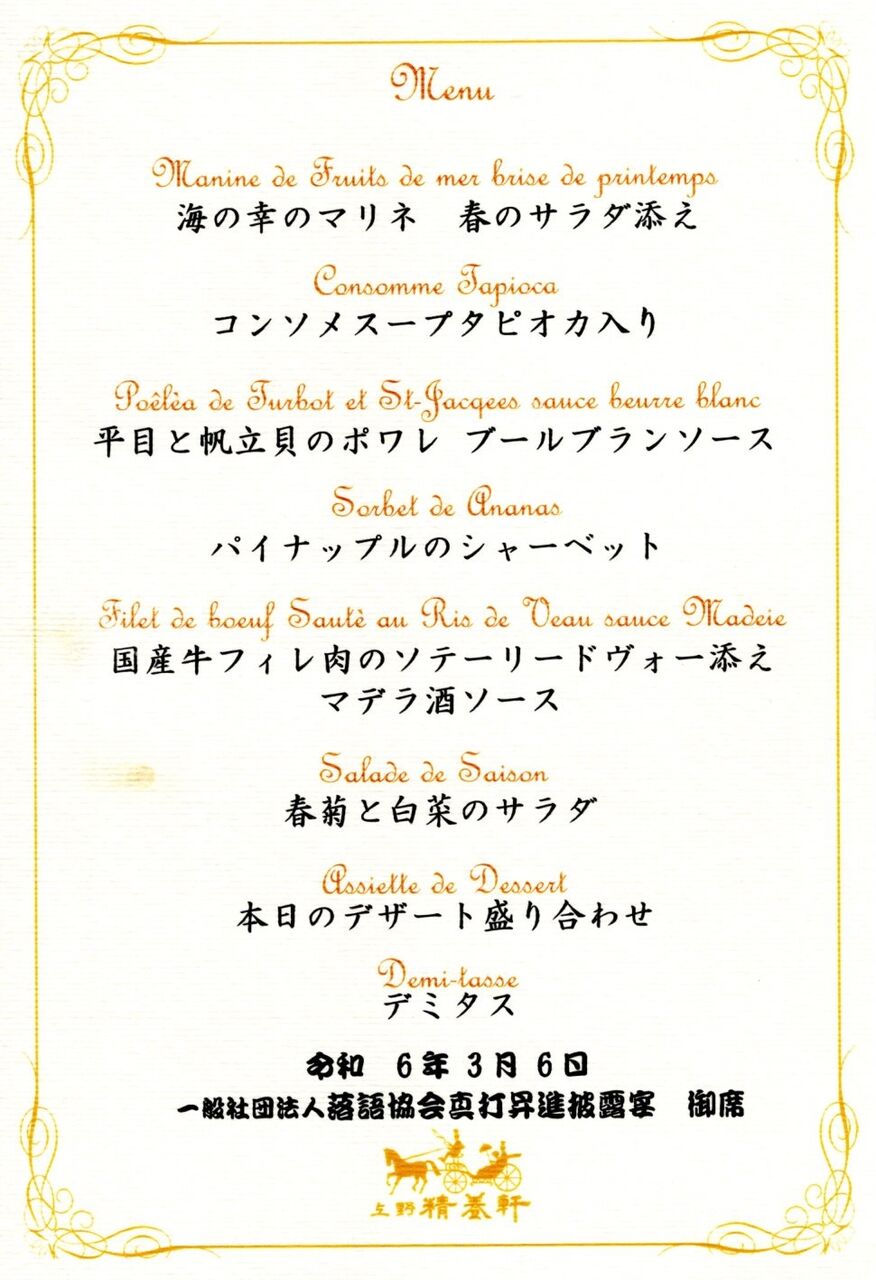 Menu
Manine de Fruits de mer brise de printemps
海の幸のマリネ　春のサラダ添え
Consomme Tapioca
コンソメスープタピオカ入り
Poêlèa de Turbot et St-Jacqees sauce beurre blanc
平目と帆立貝のポワレ ブールブランソース
Sorbet de Ananas
パイナップルのシャーベット
Filet de boeuf Sautè au Ris de Veau sauce Madeie
国産牛フィレ肉のソテーリードヴォー添え
マデラ酒ソース
Salade de Saison
春菊と白菜のサラダ
Assiette de Dessert
本日のデザート盛り合わせ
Demi-tasse
デミタス
令和　6年3月6日
一般社団法人落語協会真打昇進披露宴　御席
上野精養軒